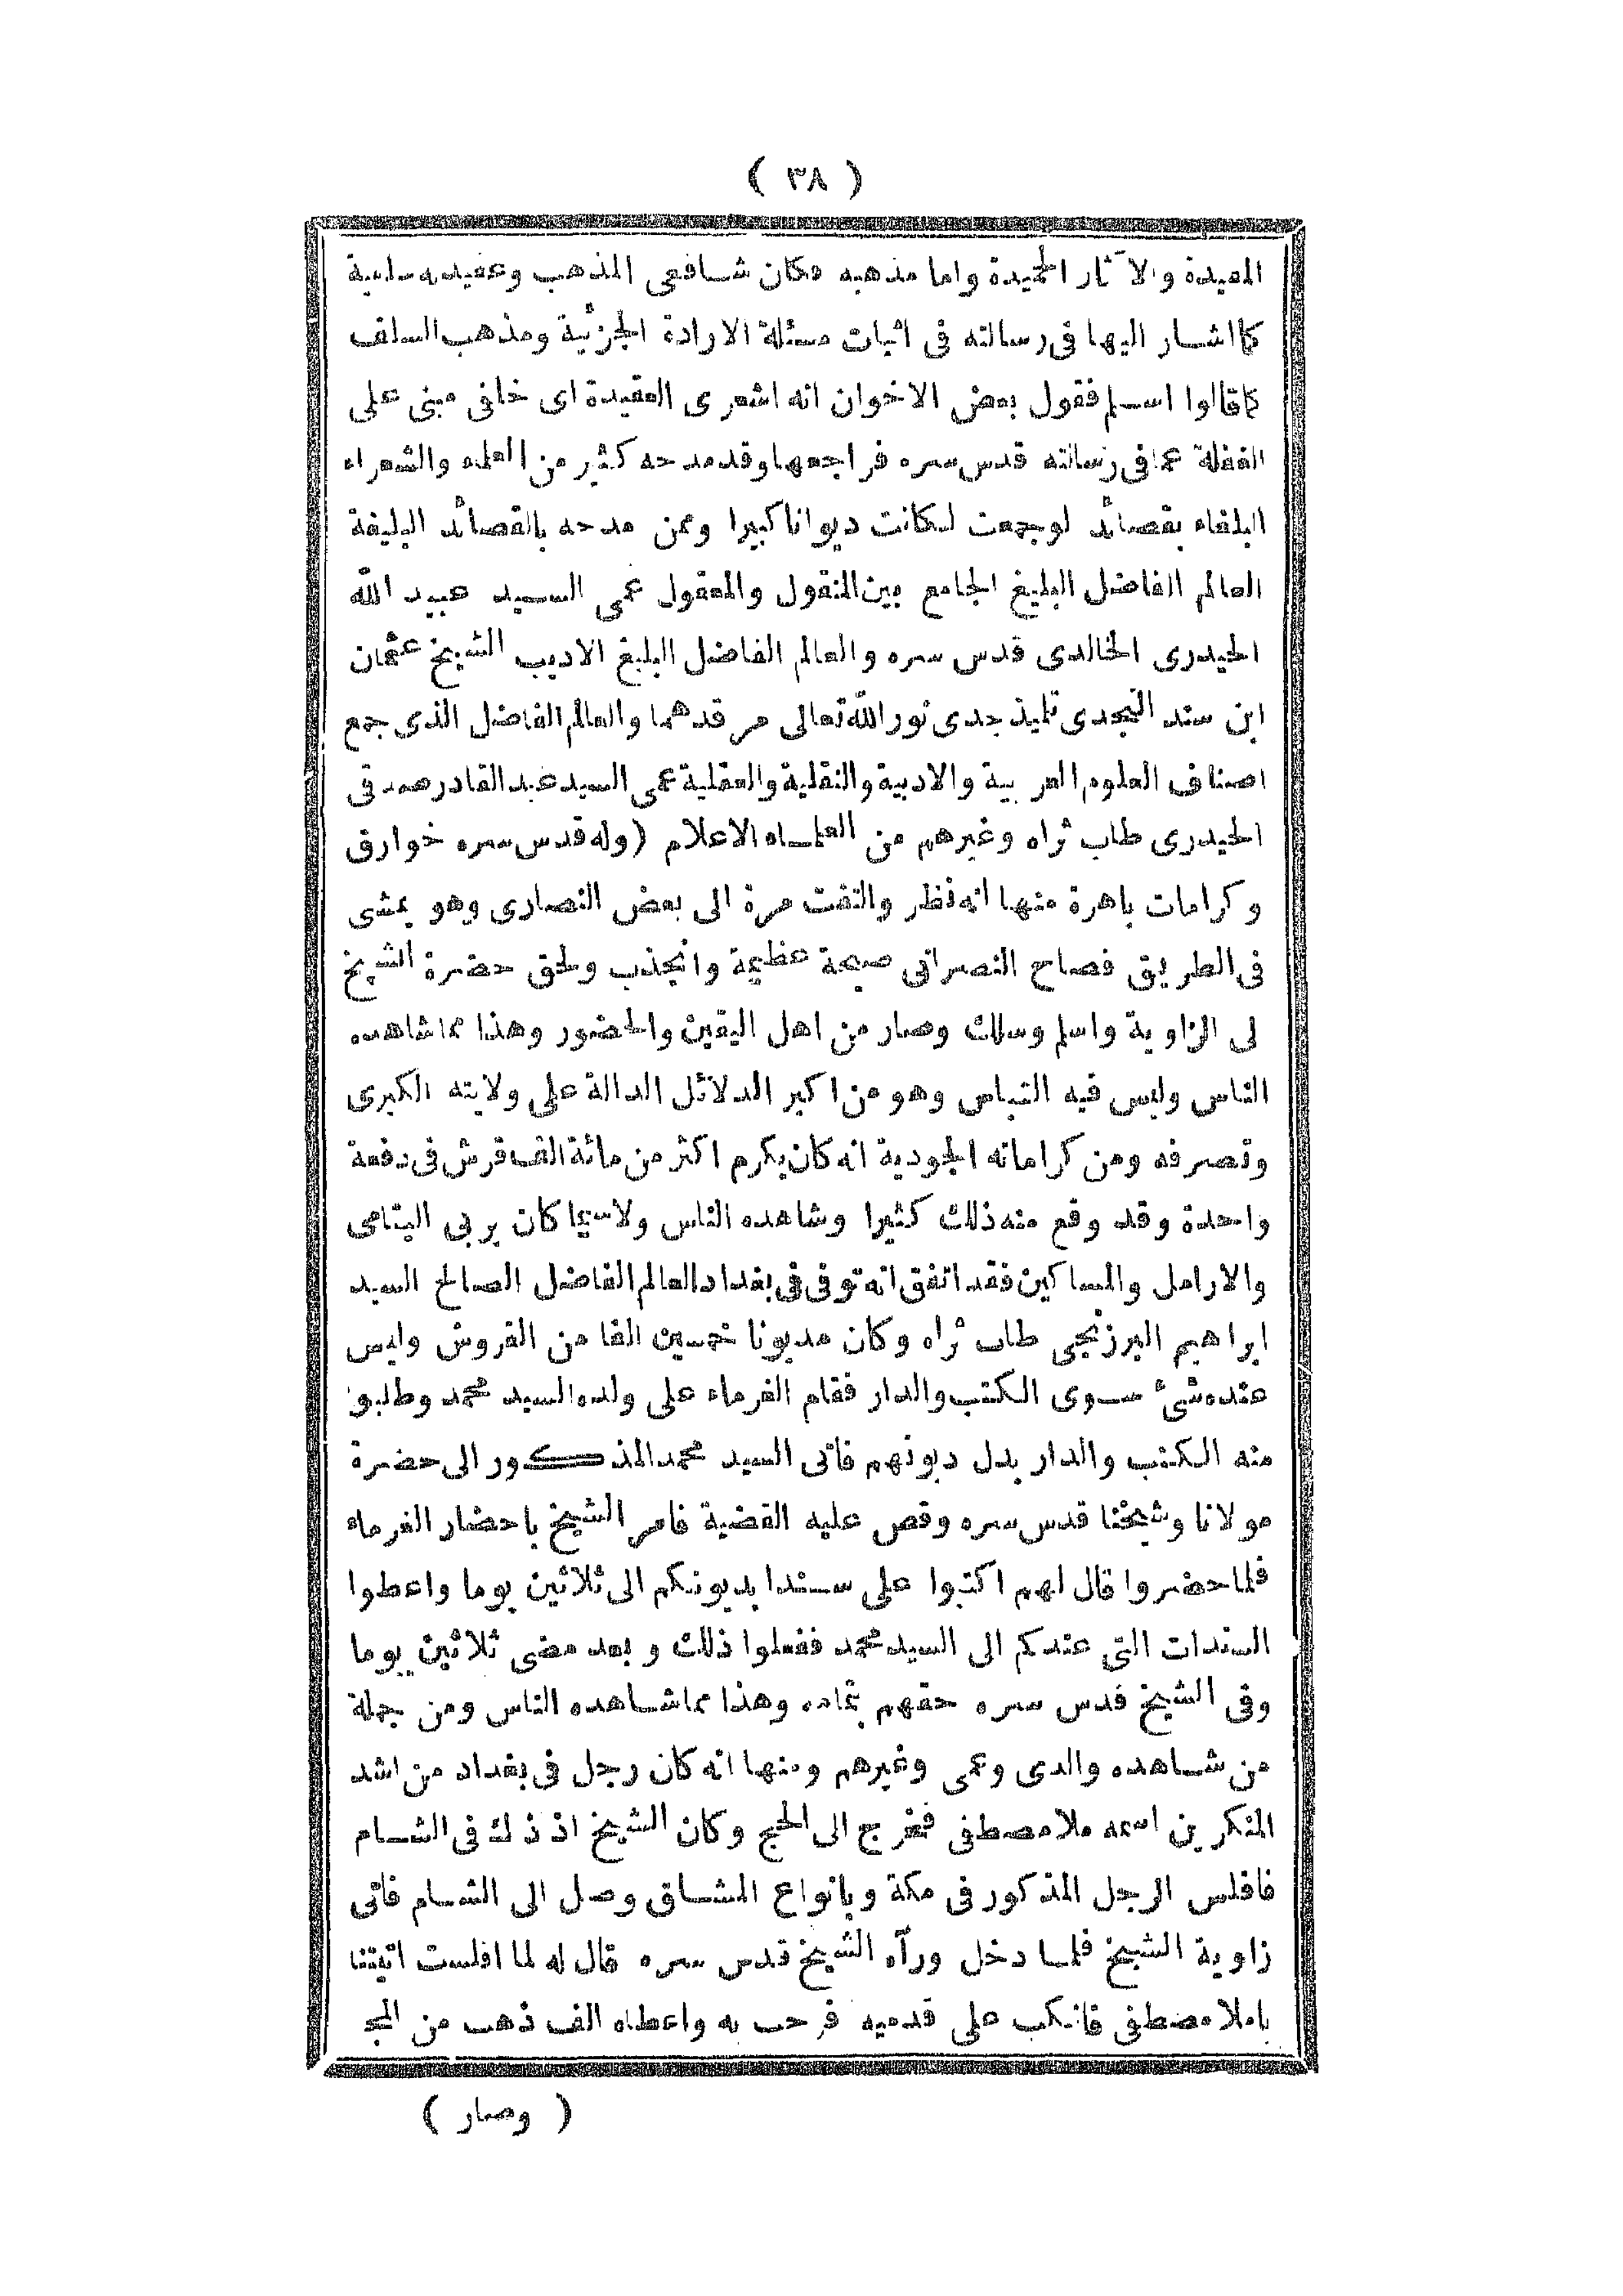 ( ٣٨ )
المفيدة والآثار الحميدة واما مذهبه فكان شافعى المذهب وعقيدته سلفية
كما اشار اليها فى رسالته فى اثبات مسئلة الارادة الجزئية ومذهب السلف
كما قالوا اسلم فقول بعض الاخوان انه اشعرى العقيدة اى خلفى مبنى على
الغفلة عما فى رسالته قدس سره فراجعها وقد مدحه كثير من العلماء والشعراء
البلغاء بقصائد لو جمعت لكانت ديوانا كبيرا وممن مدحه بالقصائد البليغة
العالم الفاضل البليغ الجامع بين المنقول والمعقول عمى السيد عبيد الله
الحيدرى الخالدى قدس سره والعالم الفاضل البليغ الاديب الشيخ عثمان
ابن سند النجدى تلميذ جدى نور الله تعالى مرقدهما والعالم الفاضل الذى جمع
اصناف العلوم العربية والادبية والنقلية والعقلية عمى السيد عبد القادر صدقى
الحيدرى طاب ثراه وغيرهم من العلماء الاعلام (وله قدس سره خوارق
وكرامات باهرة منها انه نظر والتفت مرة الى بعض النصارى وهو يمشى
فى الطريق فصاح النصرانى صيحة عظيمة وانجذب ولحق حضرة الشيخ
لى الزاوية واسلم وسلك وصار من اهل اليقين والحضور وهذا مما شاهده
الناس وليس فيه التباس وهو من اكبر الدلائل الدالة على ولايته الكبرى
وتصرفه ومن كراماته الجودية انه كان يكرم اكثر من مائة الف قرش فى دفعة
واحدة وقد وقع منه ذلك كثيرا وشاهده الناس ولاسيما كان يربى اليتامى
والارامل والمساكين فقد اتفق انه توفى فى بغداد العالم الفاضل الصالح السيد
ابراهيم البرزنجى طاب ثراه وكان مديونا خمسين الفا من القروش وليس
عنده شئ سوى الكتب والدار فقام الغرماء على ولده السيد محمد وطلبو
منه الكتب والدار بدل ديونهم فاتى السيد محمد المذكور الى حضرة
مولانا وشيخنا قدس سره وقص عليه القضية فامر الشيخ باحضار الغرماء
فلما حضروا قال لهم اكتبوا على سندا بديونكم الى ثلاثين يوما واعطوا
السندات التى عندكم الى السيد محمد ففعلوا ذلك وبعد مضى ثلاثين يوما
وفى الشيخ قدس سره حقهم بتمامه وهذا مما شاهده الناس ومن جملة
من شاهده والدى وعمى وغيرهم ومنها انه كان رجل فى بغداد من اشد
المنكرين اسمه ملا مصطفى فخرج الى الحج وكان الشيخ اذ ذاك فى الشام
فافلس الرجل المذكور فى مكة وبانواع المشاق وصل الى الشام فاتى
زاوية الشيخ فلما دخل ورآه الشيخ قدس سره قال له لما افلست اتيتنا
ياملا مصطفى فانكب على قدميه فرحب به واعطاه الف ذهب من المجـ
( وصار )